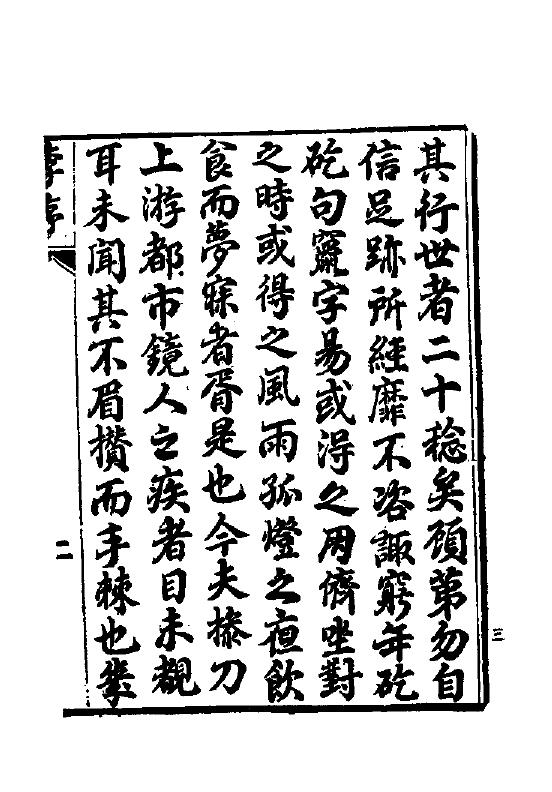 其行世者二十稔矣顧第勿自
信足跡所經靡不咨諏窮年矻
矻句竄字易或得之朋儕坐對
之時或得之風雨孤燈之夜飲
食而夢寐者胥是也今夫操刀
上游都市鏡人之疾者目未覩
耳未聞其不眉攢而手棘也幾
二
三